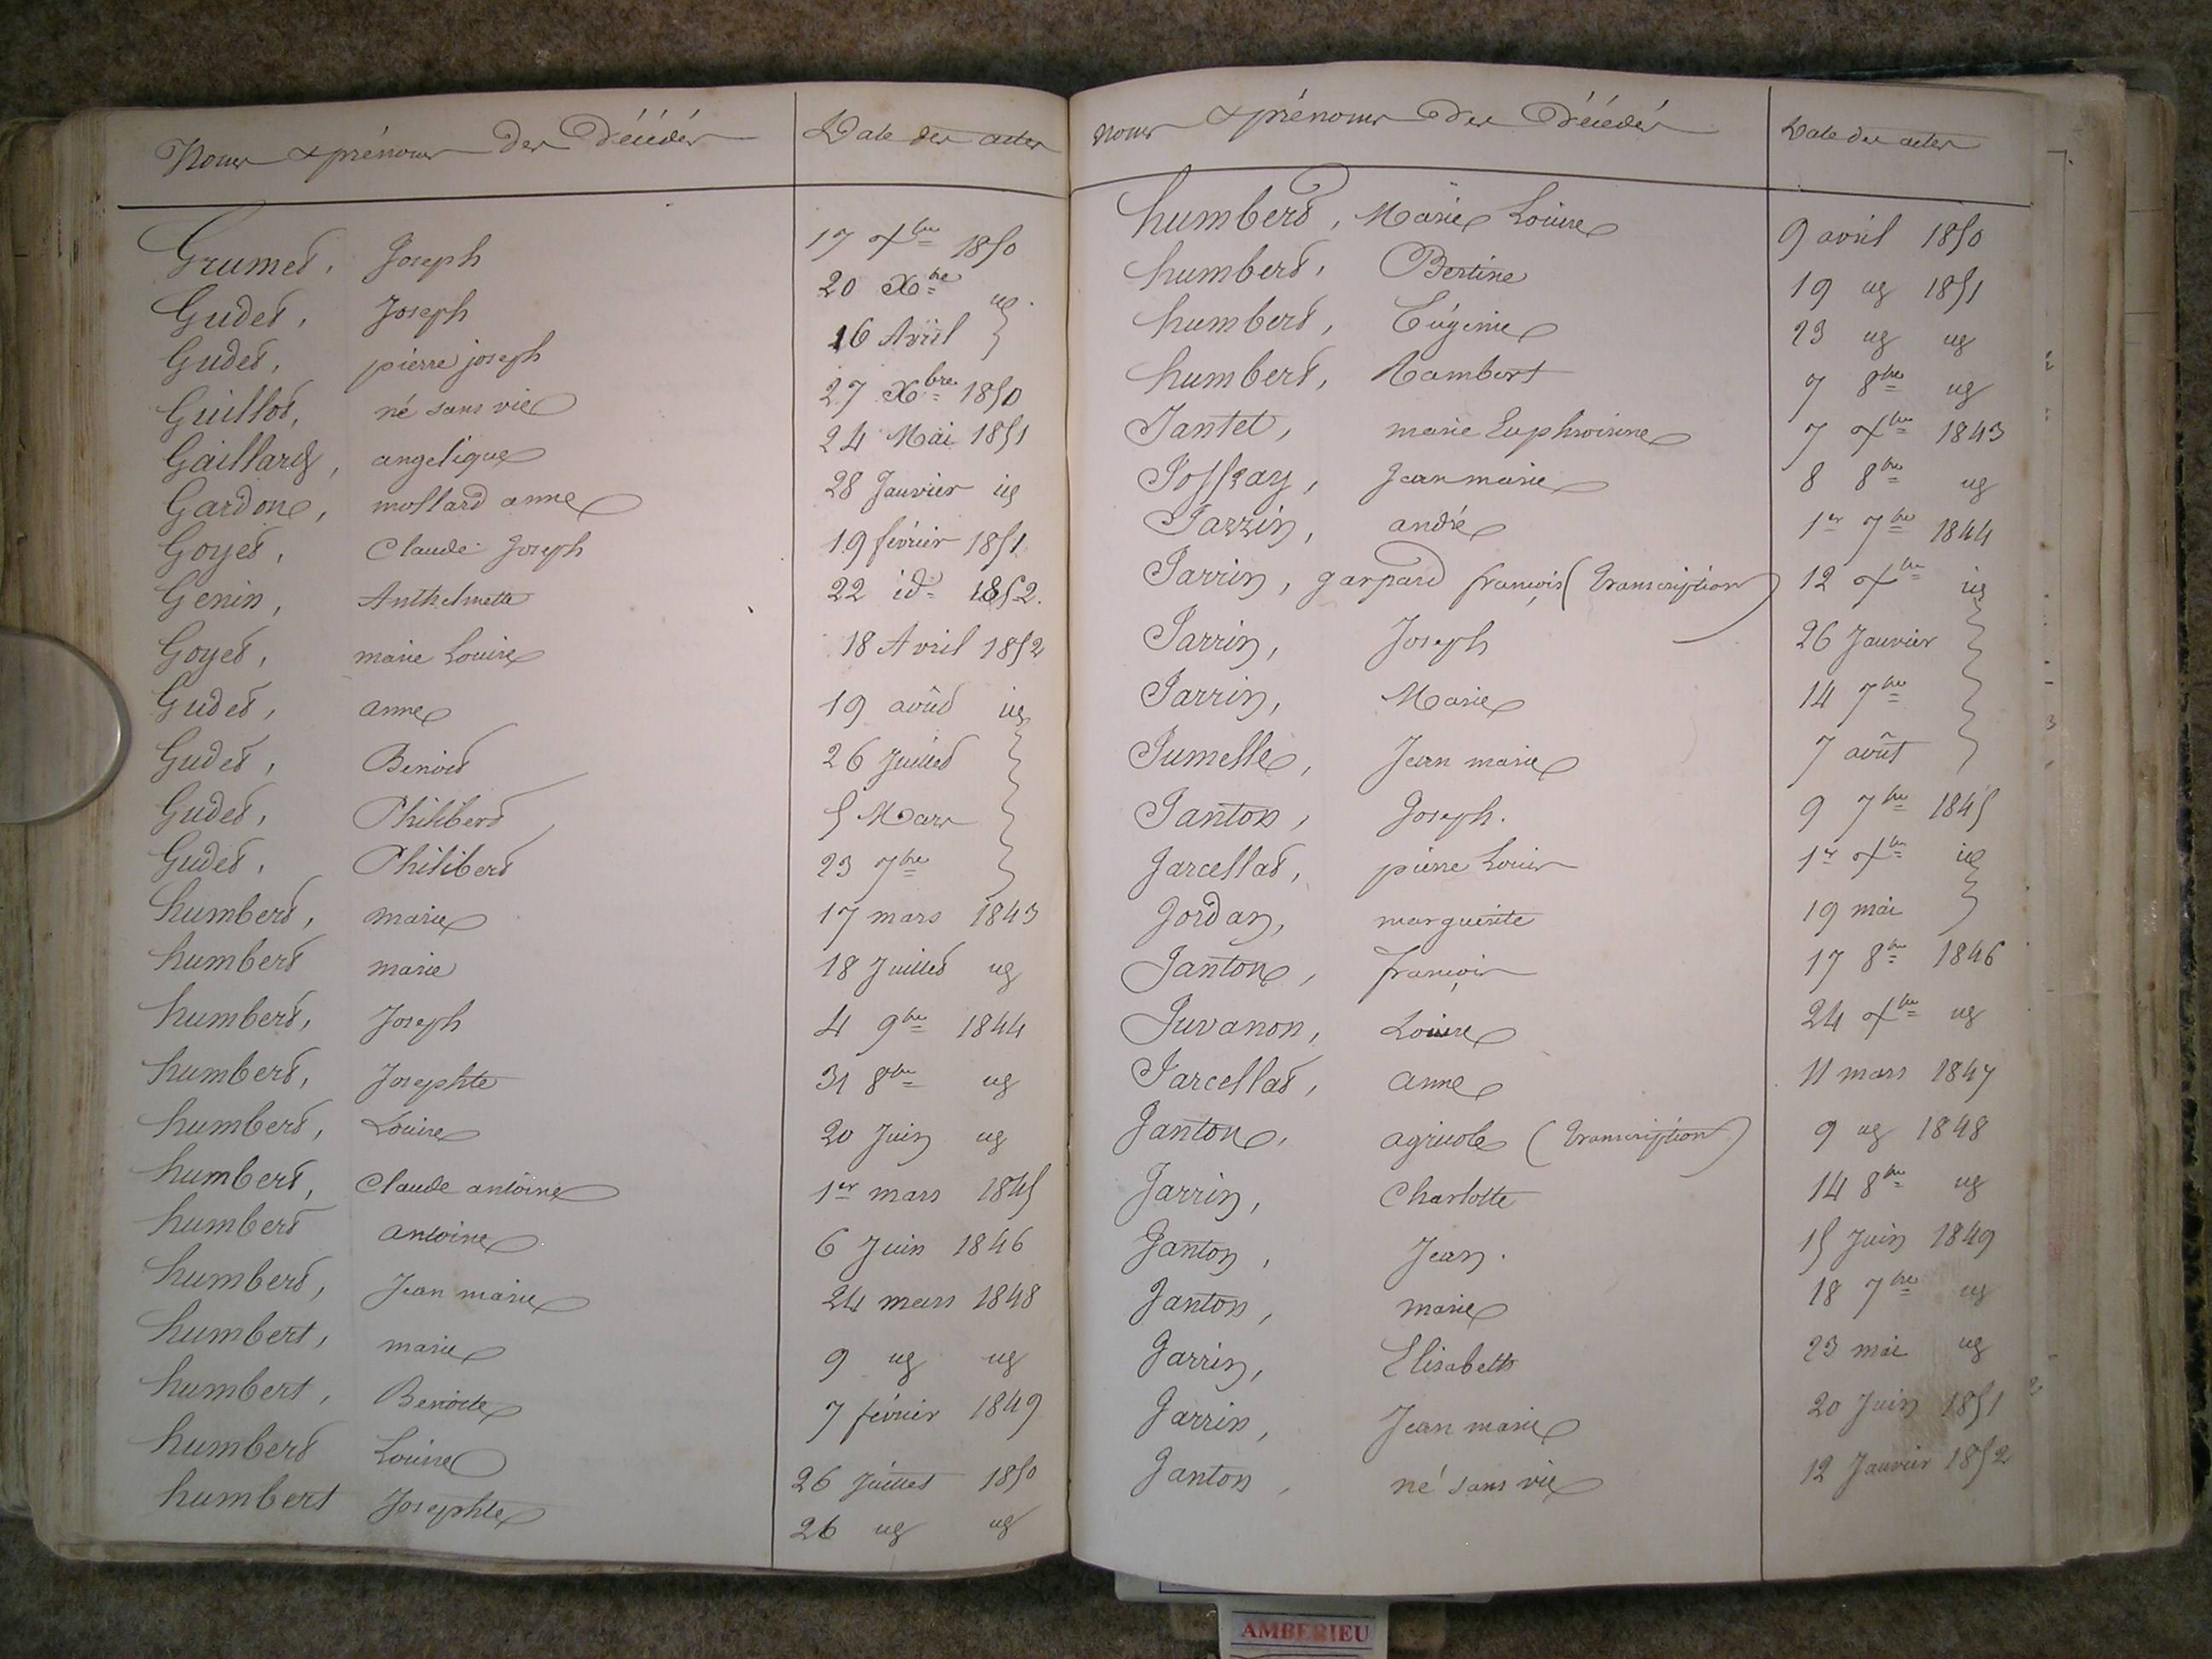 Noms & prénoms des Décédés Date des actes
Grumet, Joseph 17 Xbre 1850
Gudet, Joseph 20 Xbre id.
Gudet, pierre joseph 16 Avril }
Guillot, né sans vie 27 Xbre 1850
Gaillard, angelique 24 Mai 1851
Gardon, mollard anne 28 Janvier id
Goyet, Claude Joseph 19 février 1851
Genin, Anthelmette 22 id. 1852.
Goyet, marie Louise 18 Avril 1852
Gudet, anne 19 août id
Gudet, Benoit 26 Juillet }
Gudet, Philibert 5 Mars }
Gudet, Philibert 23 7bre }
humbert, marie 17 mars 1843
humbert marie 18 Juillet id
humbert, Joseph 4 9bre 1844
humbert, Josephte 31 8bre id
humbert, Louise 20 Juin id
humbert, Claude antoine 1er mars 1845
humbert antoine 6 Juin 1846
humbert, Jean marie 24 mars 1848
humbert, marie 9 id id
humbert, Benoite 7 février 1849
humbert Louise 26 Juillet 1850
humbert Josephte 26 id id
Noms & prénoms des Décédés Date des actes
humbert, Marie Louise 9 avril 1850
humbert, Bertine 19 id 1851
humbert, Eugénie 23 id id
humbert, Rambert 7 8bre id
Jantet, marie Euphroisine 7 Xbre 1843
Joffray, Jean marie 8 8bre id
Jarrin, andré 1er 7bre 1844
Jarrin, gaspard françois (transcription) 12 Xbre id
Jarrin, Joseph 26 Janvier }
Jarrin, Marie 14 7bre }
Jumelle, Jean marie 7 août }
Janton, Joseph. 9 7bre 1845
Jarcellat, pierre Louis 1er Xbre id
Jordan, marguerite 19 mai }
Janton, françois 17 8bre 1846
Juvanon, Louise 24 Xbre id
Jarcellat, anne 11 mars 1847
Janton, agricole (transcription) 9 id 1848
Jarrin, Charlotte 14 8bre id
Janton, Jean. 15 Juin 1849
Janton, marie 18 7bre id
Jarrin, Elisabeth 23 mai id
Jarrin, Jean marie 20 Juin 1851
Janton, né sans vie 12 Janvier 1852
AMBERIEU